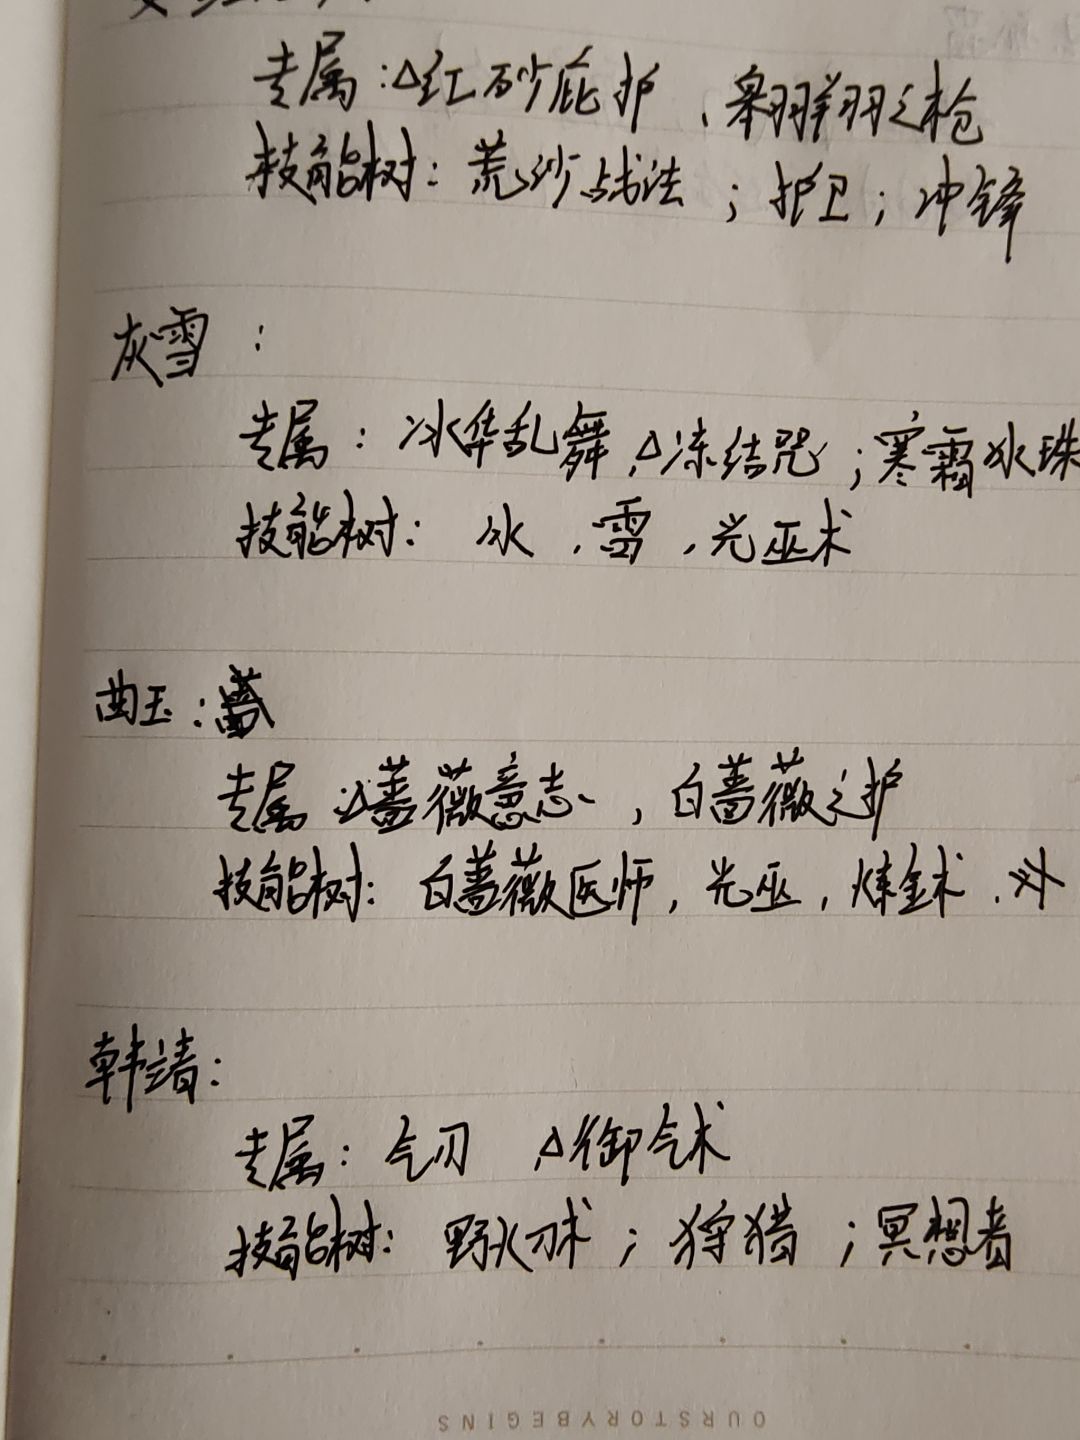 专属:△红砂庇护、翱翔之枪
技能树:荒沙战法;护卫;冲锋
灰雪:
专属:冰华乱舞,△冻结咒;寒霜冰珠
技能树:冰,雷,光巫术
曲玉:
专属:△蔷薇意志,白蔷薇之护
技能树:白蔷薇医师,光巫,炼金术、
韩靖:
专属:气刃,△御气术
技能树:野火刀术;狩猎;冥想者
OURSTORYBEGINS